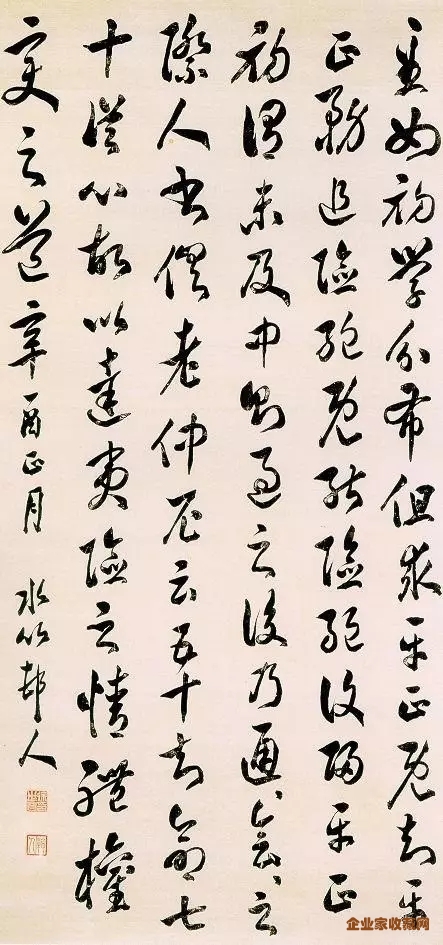 至如初學分布但求平正既知平
正務追險絕既能險絕復歸平正
初謂未及中則過之後乃通〻會〻之
際人書俱老仲尼云五十知命七
十從心故以達夷險之情體權
變之道辛酉正月 水竹邨人
企业家收藏网